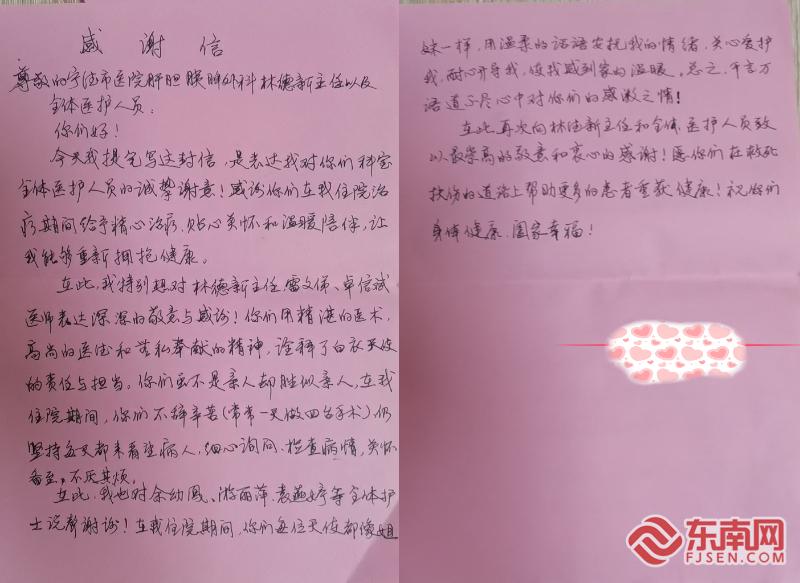 感谢信
尊敬的宁德市医院肝胆胰脾外科林德新主任以及
全体医护人员:
你们好!
今天我提笔写这封信,是表达我对你们科室
全体医护人员的诚挚谢意!感谢你们在我住院治
疗期间给予精心治疗、贴心关怀和温暖陪伴,让
我能够重新拥抱健康。
在此,我特别想对林德新主任、雷文俤、卓信斌
医师表达深深的敬意与感谢!你们用精湛的医术、
高尚的医德和无私奉献的精神,诠释了白衣天使
的责任与担当。你们虽不是亲人却胜似亲人,在我
住院期间,你们不辞辛苦(常常一天做四台手术)仍
坚持每天都来看望病人,细心询问、检查病情,关怀
备至,不厌其烦。
在此,我也对余幼凤、游丽萍、袁燕婷等全体护
士说声谢谢!在我住院期间,你们每位天使都像姐
妹一样,用温柔的话语安抚我的情绪,关心爱护
我,耐心开导我,使我感到家的温暖。总之,千言万
语道不尽心中对你们的感激之情!
在此再次向林德新主任和全体医护人员致
以最崇高的敬意和衷心的感谢!愿你们在救死
扶伤的道路上帮助更多的患者重获健康!祝你们
身体健康、阖家幸福!
东南网
FJSEN.COM